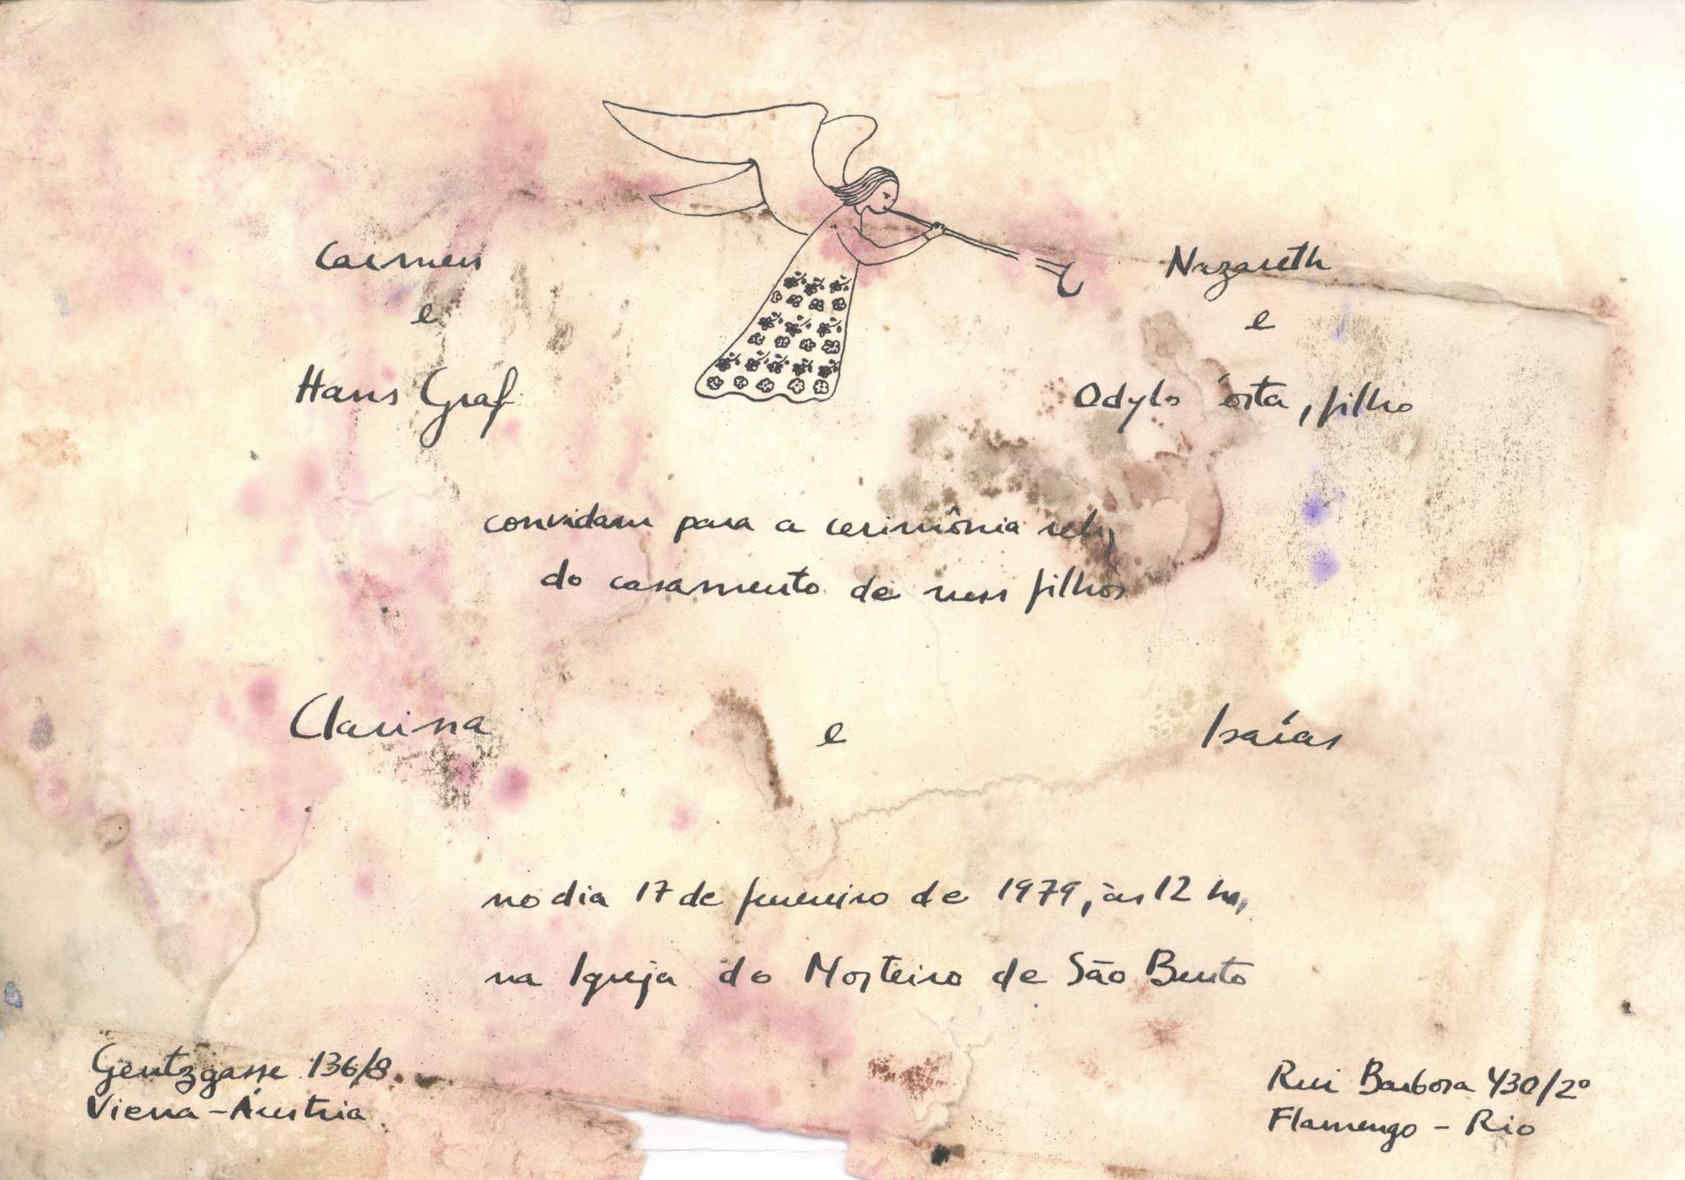 Carmen
e
Hans Graf
Nazareth
e
Odylo osta, filho
convidam para a cerimônia
do casamento de seus filhos
Clarissa e Isaías
no dia 17 de fevereiro de 1979, às 12 hs,
na Igreja do Mosteiro de São Bento
Gentzgasse 136/8
Viena - Áustria
Rui Barbosa 430/2º
Flamengo - Rio